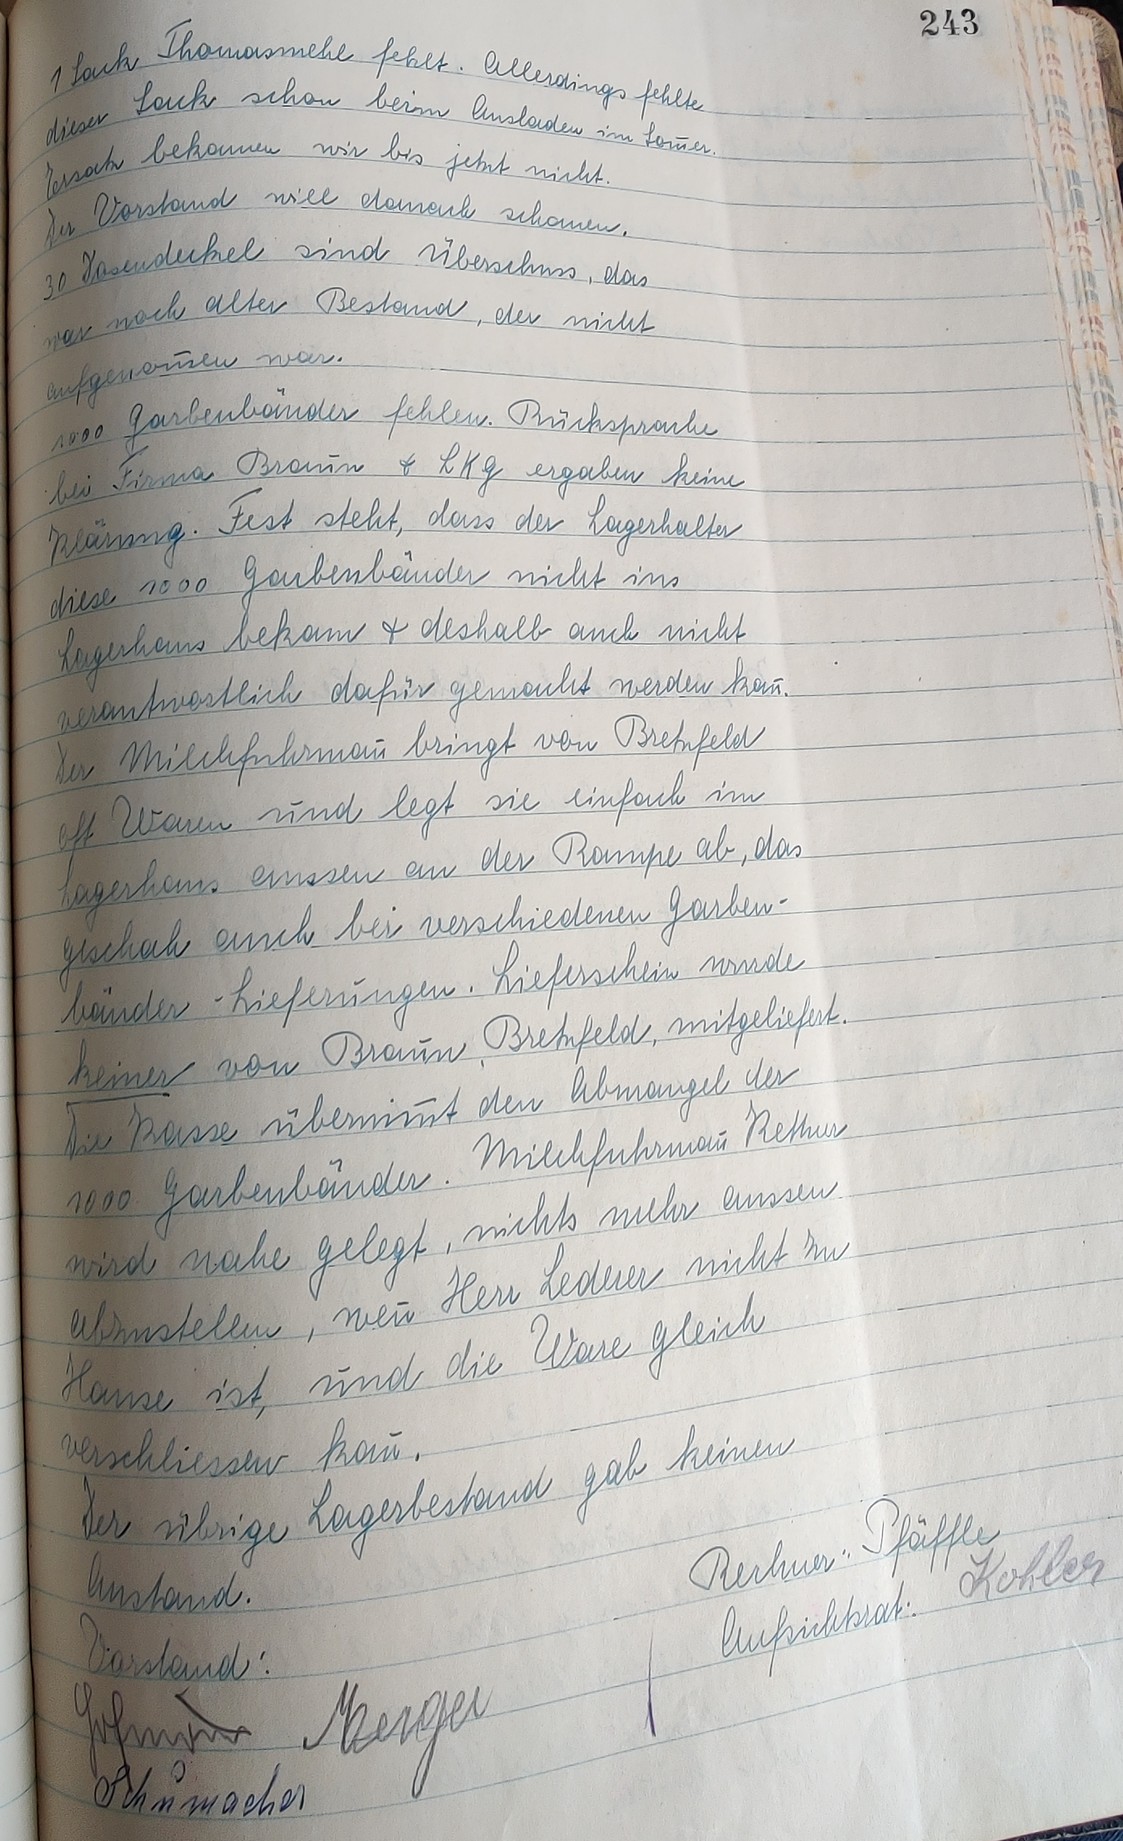 243
1 Sack Thomasmehl fehlt. Allerdings fehlte
dieser Sack schon beim Ausladen im Som̄er.
Ersatz bekamen wir bis jetzt nicht.
Der Vorstand will danach schauen.
30 Dosendeckel sind Überschuss, das
war noch alter Bestand, der nicht
aufgenom̄en war.
1000 Garbenbänder fehlen. Rücksprache
bei Firma Braun & LKG ergaben keine
Klärung. Fest steht, dass der Lagerhalter
diese 1000 Garbenbänder nicht ins
Lagerhaus bekam & deshalb auch nicht
verantwortlich dafür gemacht werden kan̄.
Der Milchfuhrman̄ bringt von Bretzfeld
oft Waren und legt sie einfach im
Lagerhaus aussen an der Rampe ab, das
geschah auch bei verschiedenen Garben-
bänder-Lieferungen. Lieferschein wurde
keiner von Braun, Bretzfeld, mitgeliefert.
Die Kasse übernim̄t den Abmangel der
1000 Garbenbänder. Milchfuhrman̄ Kettner
wird nahe gelegt, nichts mehr aussen
abzustellen, wen̄ Herr Lederer nicht zu
Hause ist, und die Ware gleich
verschliessen kan̄.
Der übrige Lagerbestand gab keinen
Anstand.
Rechner: Pfäffle
Vorstand:
Aufsichtsrat: Kohler
Merger
Schumacher